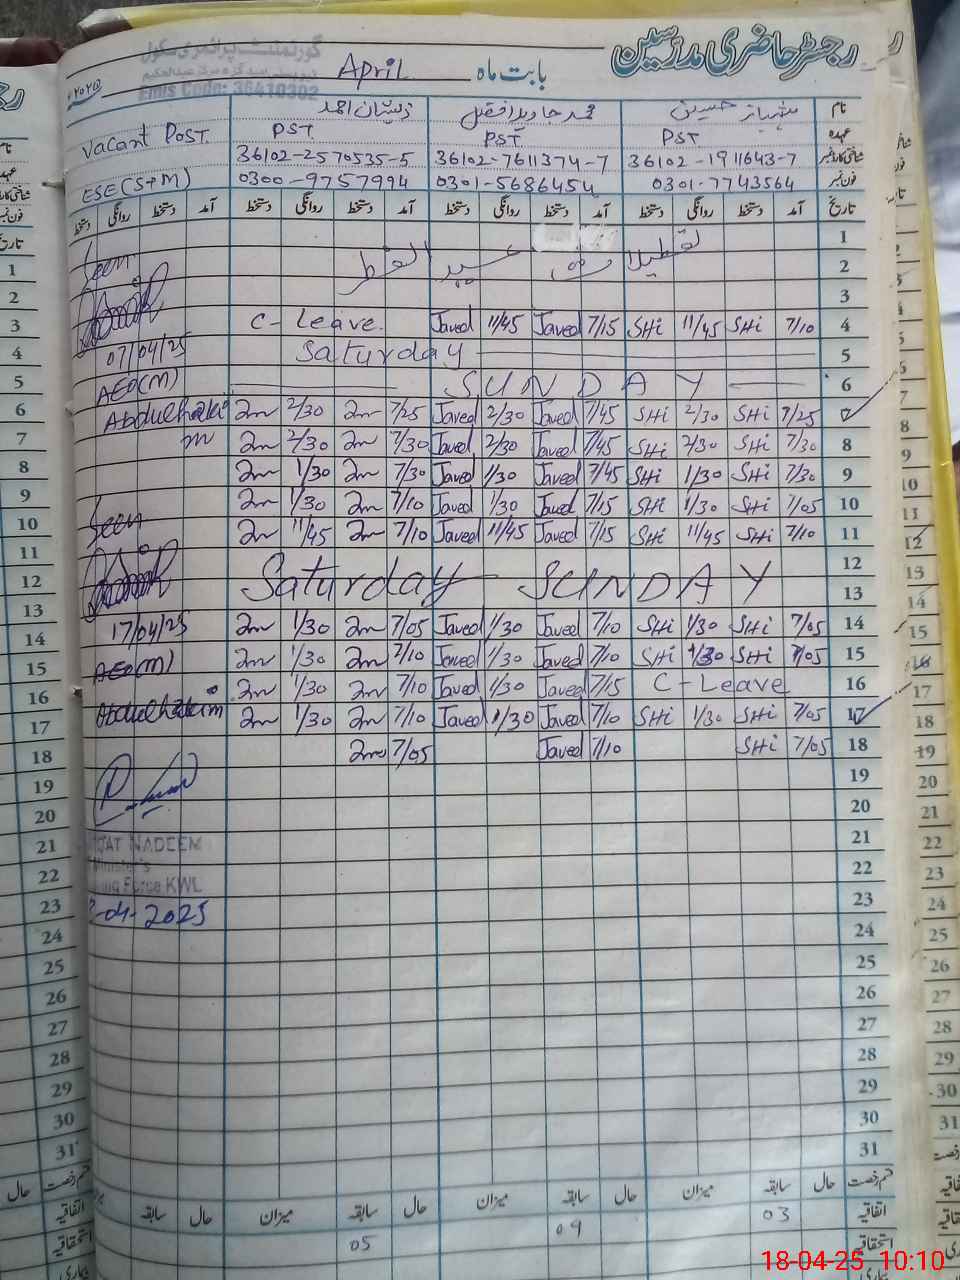 رجسٹر حاضری مدرسین
بابت ماہ April ۲۰۲۵ء
گورنمنٹ پرائمری سکول
Emis Code: 36410302
نام شہباز حسین محمد جاوید افضل ذیشان احمد
عہدہ PST PST PST Vacant Post
شناختی کارڈ نمبر 36102-1911643-7 36102-7611374-7 36102-2570535-5
فون نمبر 0301-7743564 0301-5686454 0300-9757994 ESE(S+M)
تاریخ آمد دستخط روانگی دستخط آمد دستخط روانگی دستخط آمد دستخط روانگی دستخط آمد دستخط روانگی دستخط
1
2 تعطیلات عید الفطر Seen
3
4 7/10 SHi 11/45 SHi 7/15 Javed 11/45 Javed C-Leave.
5 Saturday 07/04/25
6 SUNDAY AEO(M)
7 7/25 SHi 2/30 SHi 7/45 Javed 2/30 Javed 7/25 2/30 Abdulhakim
8 7/30 SHi 2/30 SHi 7/45 Javed 2/30 Javed 7/30 2/30
9 7/30 SHi 1/30 SHi 7/45 Javed 1/30 Javed 7/30 1/30
10 7/05 SHi 1/30 SHi 7/15 Javed 1/30 Javed 7/10 1/30 Seen
11 7/10 SHi 11/45 SHi 7/15 Javed 11/45 Javed 7/10 11/45
12
13 Saturday SUNDAY
14 7/05 SHi 1/30 SHi 7/10 Javed 1/30 Javed 7/05 1/30 17/04/25
15 7/05 SHi 1/30 SHi 7/10 Javed 1/30 Javed 7/10 1/30 AEO(M)
16 C-Leave 7/15 Javed 1/30 Javed 7/10 1/30
17 7/05 SHi 1/30 SHi 7/10 Javed 1/30 Javed 7/10 1/30 Abdulhakim
18 7/05 SHi 7/10 Javed 7/05
19
20
21 NADEEM
22 Minister's
23 Force KWL
24 -04-2025
25
26
27
28
29
30
31
قسم رخصت حال سابقہ میزان حال سابقہ میزان حال سابقہ میزان حال سابقہ
اتفاقیہ 03 09 05
استحقاقیہ
بیماری
18-04-25 10:10